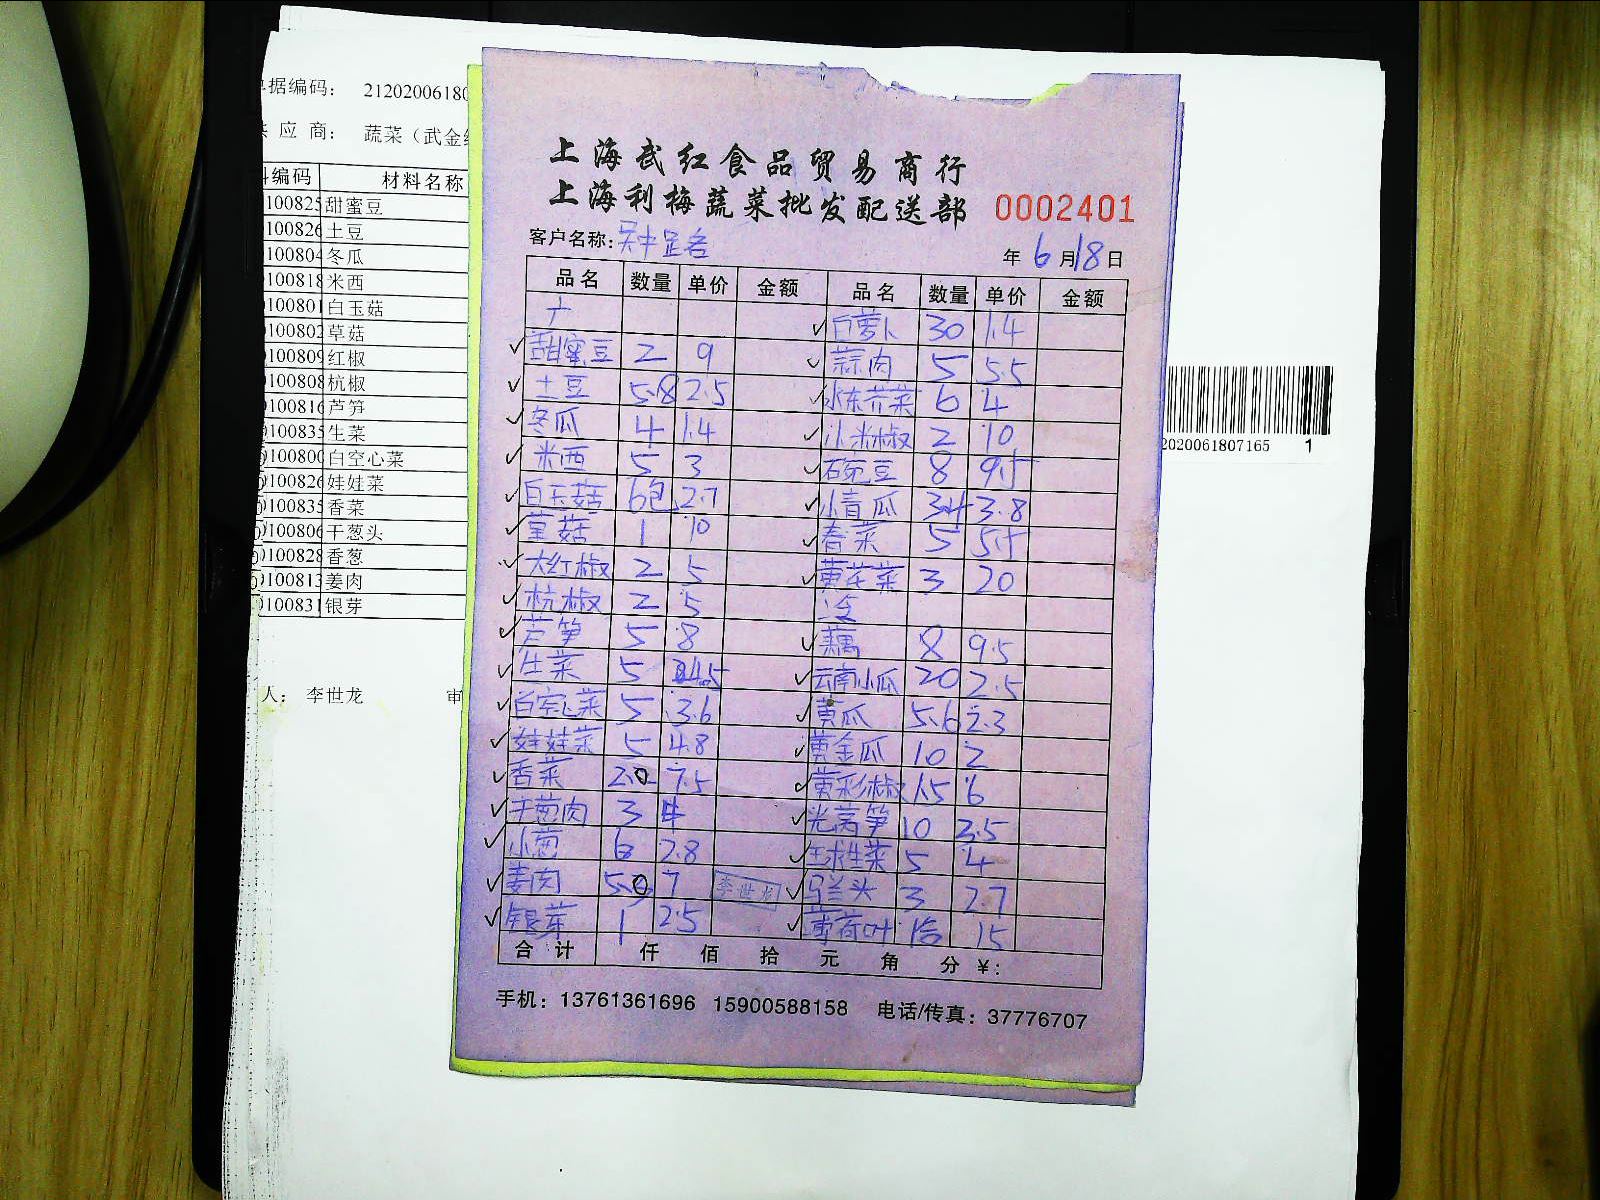 据编码： 21202006180
应 商： 蔬菜（武金
编码 材料名称
100825 甜蜜豆
100826 土豆
100804 冬瓜
100818 米西
100801 白玉菇
100802 草菇
100809 红椒
100808 杭椒
100816 芦笋
100835 生菜
100800 白空心菜
100826 娃娃菜
100835 香菜
100806 干葱头
100828 香葱
100813 姜肉
100831 银芽
人： 李世龙 审
上海武红食品贸易商行
上海利梅蔬菜批发配送部 0002401
客户名称： 年 6 月 18 日
品名 数量 单价 金额 品名 数量 单价 金额
白萝卜 30 1.4
甜蜜豆 2 9 蒜肉 5 5.5
土豆 5.8 2.5 水东芥菜 6 4
冬瓜 4 1.4 小米椒 2 10
米西 5 3 石豌豆 8 9.5
白玉菇 6包 2.7 小青瓜 3.4 3.8
草菇 1 10 春菜 5 5.5
大红椒 2 5 黄花菜 3 20
杭椒 2 5 冷
芦笋 5 8 藕 8 9.5
生菜 5 4.5 云南小瓜 20 2.5
白空心菜 5 3.6 黄瓜 5.6 2.3
娃娃菜 5 4.8 黄金瓜 10 2
香菜 2.0 7.5 黄彩椒 1.5 6
干葱肉 3 4 光莴笋 10 3.5
小葱 6 2.8 球生菜 5 4
姜肉 5.0 7 李世龙 马兰头 3 2.7
银芽 1 2.5 薄荷叶 15
合 计 仟 佰 拾 元 角 分 ￥：
手机：13761361696 15900588158 电话/传真：37776707
2020061807165 1